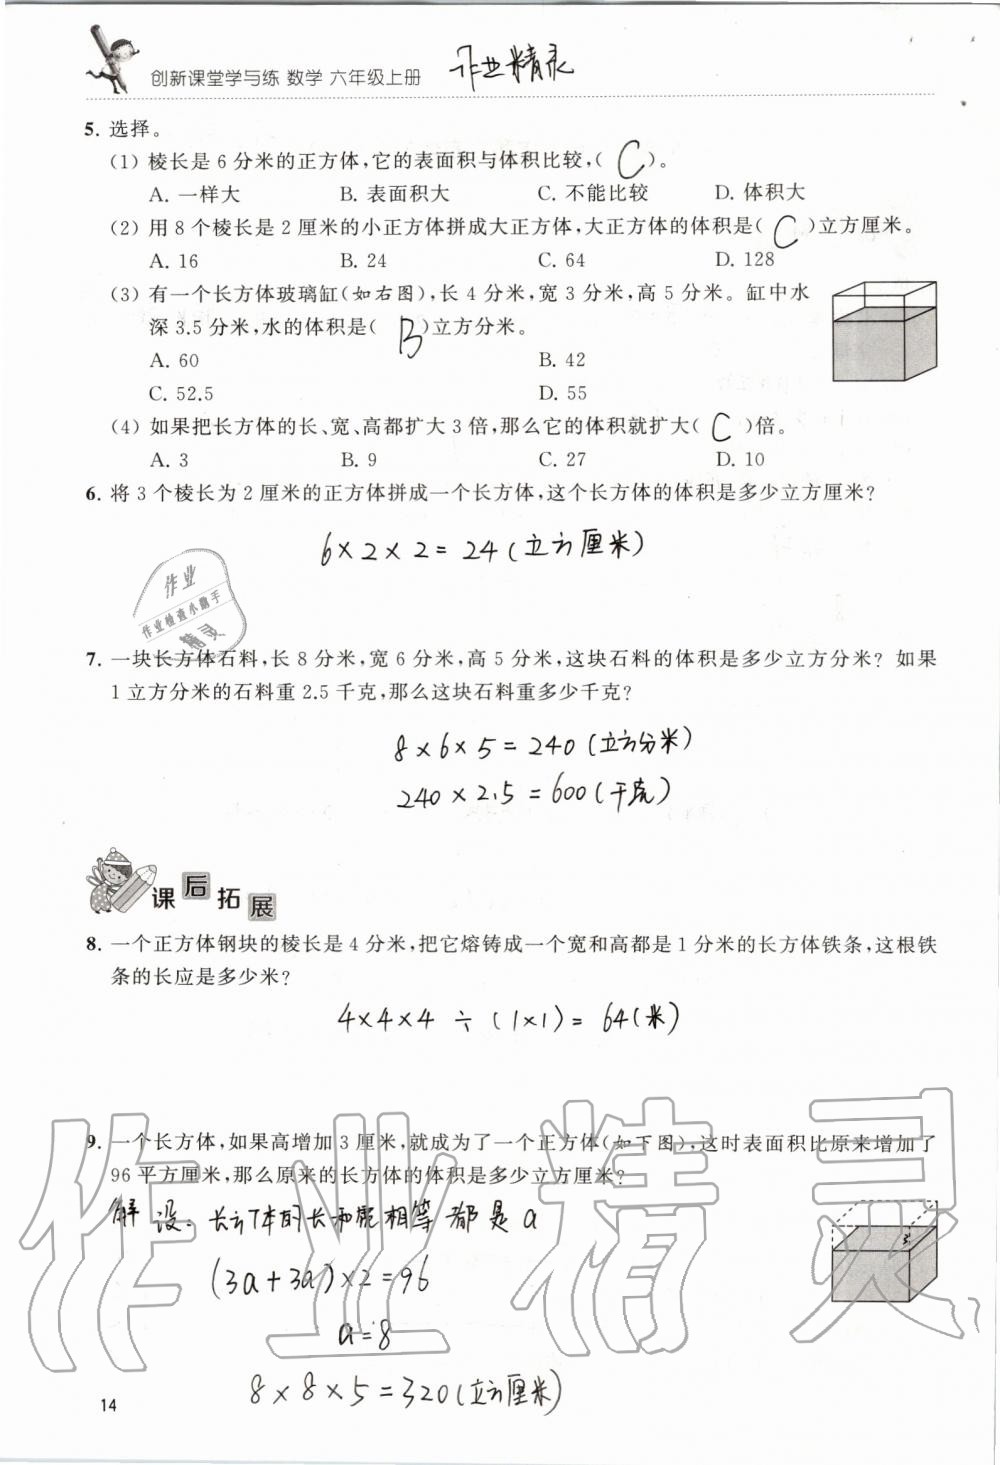 创新课堂学与练 数学 六年级上册 作业精灵
5. 选择。
(1) 棱长是 6 分米的正方体,它的表面积与体积比较,( C )。
A. 一样大 B. 表面积大 C. 不能比较 D. 体积大
(2) 用 8 个棱长是 2 厘米的小正方体拼成大正方体,大正方体的体积是( C )立方厘米。
A. 16 B. 24 C. 64 D. 128
(3) 有一个长方体玻璃缸(如右图),长 4 分米,宽 3 分米,高 5 分米。缸中水
深 3.5 分米,水的体积是( B )立方分米。
A. 60 B. 42
C. 52.5 D. 55
(4) 如果把长方体的长、宽、高都扩大 3 倍,那么它的体积就扩大( C )倍。
A. 3 B. 9 C. 27 D. 10
6. 将 3 个棱长为 2 厘米的正方体拼成一个长方体,这个长方体的体积是多少立方厘米?
6×2×2=24(立方厘米)
作业
作业检查小助手
精灵
7. 一块长方体石料,长 8 分米,宽 6 分米,高 5 分米,这块石料的体积是多少立方分米? 如果
1 立方分米的石料重 2.5 千克,那么这块石料重多少千克?
8×6×5=240(立方分米)
240×2.5=600(千克)
课后拓展
8. 一个正方体钢块的棱长是 4 分米,把它熔铸成一个宽和高都是 1 分米的长方体铁条,这根铁
条的长应是多少米?
4×4×4÷(1×1)=64(米)
作业精灵
9. 一个长方体,如果高增加 3 厘米,就成为了一个正方体(如下图),这时表面积比原来增加了
96 平方厘米,那么原来的长方体的体积是多少立方厘米?
解 设:长方体的长和宽相等都是a
(3a+3a)×2=96
a=8
8×8×5=320(立方厘米)
14